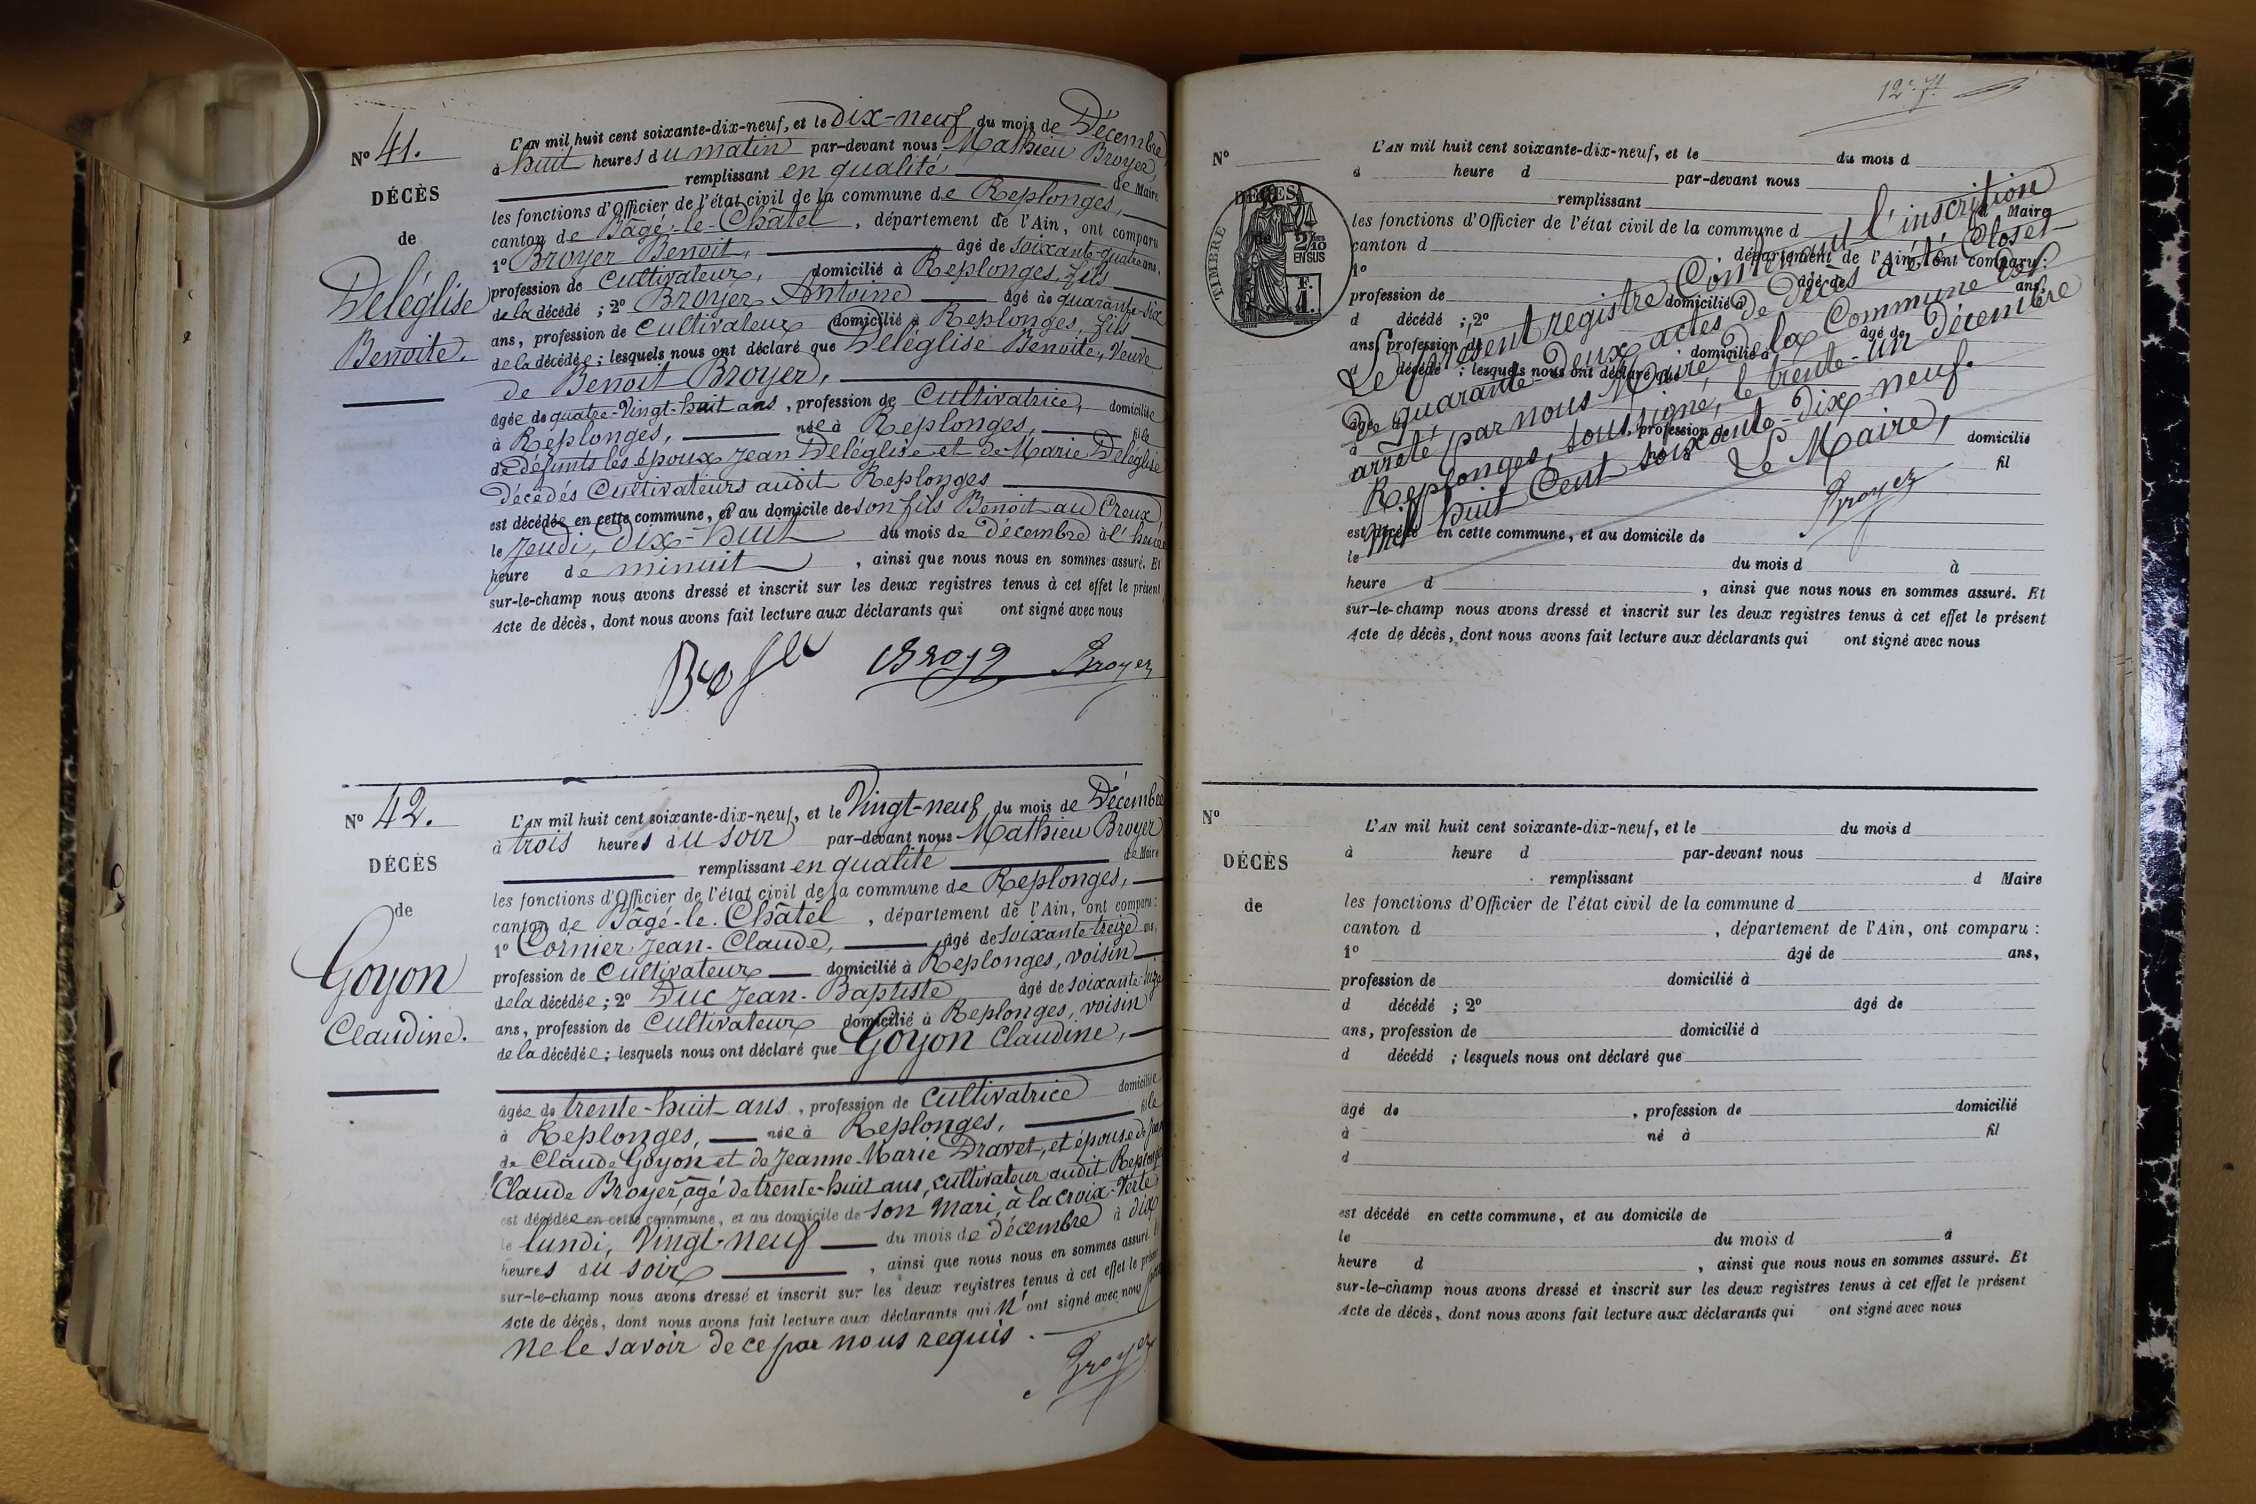 N° 41.
DÉCÈS
de
Deléglise
Benoite.
L'AN mil huit cent soixante-dix-neuf, et le Dix-neuf du mois de Décembre,
à huit heures du matin par-devant nous Mathieu Broyer,
remplissant en qualité de Maire
les fonctions d'Officier de l'état civil de la commune de Replonges,
canton de Bâgé-le-Châtel, département de l'Ain, ont comparu
1° Broyer Benoit, âgé de soixante-quatre ans,
profession de cultivateur, domicilié à Replonges, fils
de la décédé ; 2° Broyer Antoine âgé de quarante-six
ans, profession de cultivateur domicilié à Replonges, fils
de la décédée ; lesquels nous ont déclaré que Deléglise Benoite, Veuve
de Benoit Broyer,
âgée de quatre-Vingt-huit ans, profession de Cultivatrice, domiciliée
à Replonges, née à Replonges, fille
de Défunts les époux Jean Deléglise et de Marie Deléglise
Décédés Cultivateurs audit Replonges
est décédée en cette commune, et au domicile de son fils Benoit au Creux,
le Jeudi, Dix-huit du mois de Décembre à l'heure
heure de minuit, ainsi que nous nous en sommes assuré. Et
sur-le-champ nous avons dressé et inscrit sur les deux registres tenus à cet effet le présent
Acte de décès, dont nous avons fait lecture aux déclarants qui ont signé avec nous
Broyer
N° 42.
DÉCÈS
de
Goyon
Claudine.
L'AN mil huit cent soixante-dix-neuf, et le Vingt-neuf du mois de Décembre
à trois heures du soir par-devant nous Mathieu Broyer
remplissant en qualité de Maire
les fonctions d'Officier de l'état civil de la commune de Replonges,
canton de Bâgé-le-Châtel, département de l'Ain, ont comparu :
1° Cornier Jean-Claude, âgé de soixante-treize ans,
profession de cultivateur domicilié à Replonges, voisin
de la décédée ; 2° Duc Jean-Baptiste âgé de soixante
ans, profession de Cultivateur domicilié à Replonges, voisin
de la décédée ; lesquels nous ont déclaré que Goyon Claudine,
âgée de trente-huit ans, profession de cultivatrice domiciliée
à Replonges, née à Replonges, fille
de Claude Goyon et de Jeanne-Marie Dravet, et épouse de Jean
Claude Broyer, âgé de trente-huit ans, cultivateur audit Replonges
est décédée en cette commune, et au domicile de son Mari, à la croix-Verte
le lundi, Vingt-neuf du mois de décembre à dix
heures du soir, ainsi que nous nous en sommes assuré. Et
sur-le-champ nous avons dressé et inscrit sur les deux registres tenus à cet effet le présent
Acte de décès, dont nous avons fait lecture aux déclarants qui N'ont signé avec nous
ne le savoir de ce par nous requis.
Broyer
N°
DÉCÈS
de
TIMBRE
2/10
EN SUS
F.
1.
L'AN mil huit cent soixante-dix-neuf, et le du mois d
à heure d par-devant nous
remplissant d Maire
les fonctions d'Officier de l'état civil de la commune d
canton d département de l'Ain, ont comparu :
1° âgé de ans,
profession de domicilié à
d décédé ; 2° âgé de
ans, profession de domicilié à
d décédé ; lesquels nous ont déclaré que
âgé de , profession de domicilié
à né à fil
Le présent registre Contenant l'inscription
de quarante-deux actes de décès a été Clos et
arrêté par nous Maire de la Commune de
Replonges, soussigné, le trente-un décembre
mil huit cent soixante-dix-neuf.
Le Maire,
Broyer
est décédé en cette commune, et au domicile de
le du mois d à
heure d , ainsi que nous nous en sommes assuré. Et
sur-le-champ nous avons dressé et inscrit sur les deux registres tenus à cet effet le présent
Acte de décès, dont nous avons fait lecture aux déclarants qui ont signé avec nous
N°
DÉCÈS
de
L'AN mil huit cent soixante-dix-neuf, et le du mois d
à heure d par-devant nous
remplissant d Maire
les fonctions d'Officier de l'état civil de la commune d
canton d , département de l'Ain, ont comparu :
1° âgé de ans,
profession de domicilié à
d décédé ; 2° âgé de
ans, profession de domicilié à
d décédé ; lesquels nous ont déclaré que
âgé de , profession de domicilié
à né à fil
d
est décédé en cette commune, et au domicile de
le du mois d à
heure d , ainsi que nous nous en sommes assuré. Et
sur-le-champ nous avons dressé et inscrit sur les deux registres tenus à cet effet le présent
Acte de décès, dont nous avons fait lecture aux déclarants qui ont signé avec nous